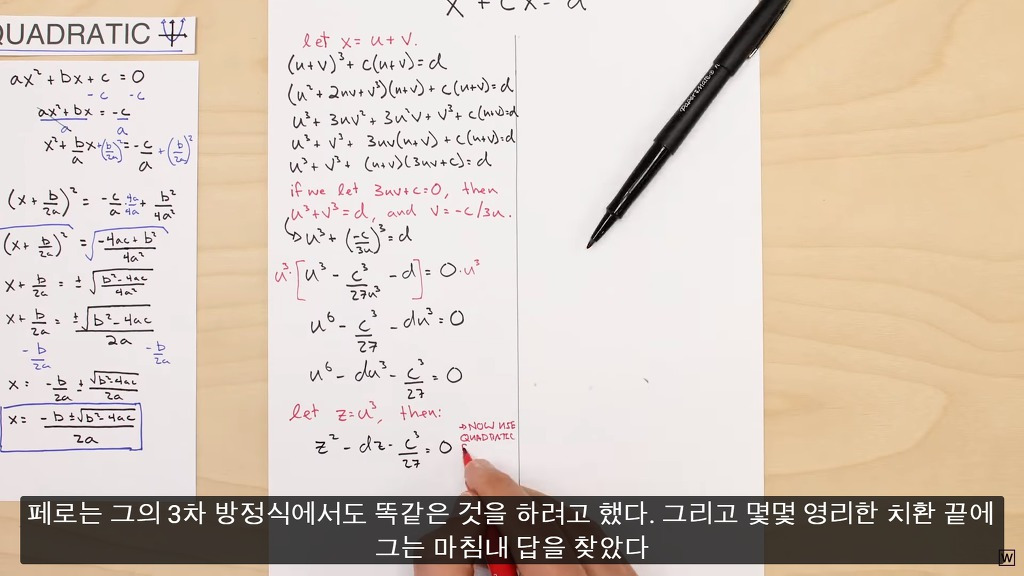 QUADRATIC
ax² + bx + c = 0
-c -c
ax² + bx = -c
a a
x² + b/a x + (b/2a)² = -c/a + (b/2a)²
(x + b/2a)² = -c/a 4a/4a + b²/4a²
√(x + b/2a)² = √(-4ac + b²)/4a²
x + b/2a = ± √(b² - 4ac)/4a²
x + b/2a = ±√(b² - 4ac)/2a
-b/2a -b/2a
x = -b/2a ± √(b² - 4ac)/2a
x = -b ± √(b² - 4ac)/2a
x³ + cx = d
let x = u + v.
(u+v)³ + c(u+v) = d
(u² + 2uv + v²)(u+v) + c(u+v) = d
u³ + 3uv² + 3u²v + v³ + c(u+v) = d
u³ + v³ + 3uv(u+v) + c(u+v) = d
u³ + v³ + (u+v)(3uv+c) = d
if we let 3uv+c=0, then
u³+v³=d, and v=-c/3u.
u³ + (-c/3u)³ = d
u³·[u³ - c³/27u³ - d] = 0·u³
u⁶ - c³/27 - du³ = 0
u⁶ - du³ - c³/27 = 0
let z=u³, then:
z² - dz - c³/27 = 0
→ NOW USE
QUADRATIC
PaperMate
페로는 그의 3차 방정식에서도 똑같은 것을 하려고 했다. 그리고 몇몇 영리한 치환 끝에
그는 마침내 답을 찾았다
W